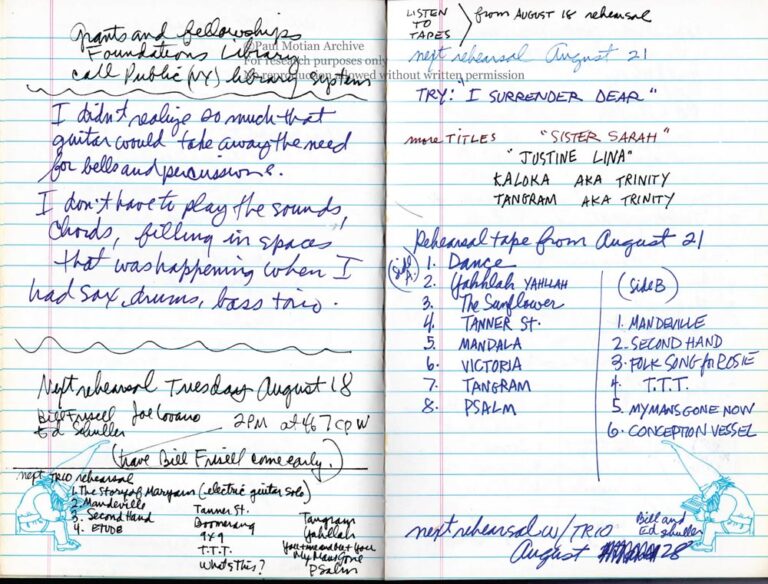 Grants and fellowships
Foundations Library
call Public (NY) library system
©Paul Motian Archive
For research purposes only
No reproduction allowed without written permission
I didn't realize so much that
guitar would take away the need
for bells and percussions.
I don't have to play the sounds,
chords, filling in spaces
that was happening when I
had sax, drums, bass trio.
Next rehearsal Tuesday August 18
Bill Frisell Joe Lovano
Ed Schuller
2PM at 467 CPW
(have Bill Frisell come early.)
next TRIO rehearsal
1. The Story of Maryam (electric guitar solo)
2. Mandeville
3. Second Hand
4. ETUDE
Tanner St.
Boomerang
9x9
T.T.T.
Who's this?
Tangram
Yahllah
My Mans Gone
Psalm
LISTEN
TO
TAPES
from AUGUST 18 rehearsal
next rehearsal August 21
TRY: "I SURRENDER DEAR"
more TITLES "SISTER SARAH"
"JUSTINE LINA"
KALOKA AKA TRINITY
TANGRAM AKA TRINITY
Rehearsal tape from August 21
(Side A.)
1. Dance
2. Yahllah YAHLLAH
3. The Sunflower
4. TANNER St.
5. MANDALA
6. VICTORIA
7. TANGRAM
8. PSALM
(Side B)
1. MANDEVILLE
2. SECOND HAND
3. FOLK SONG for ROSIE
4. T.T.T.
5. MY MANS GONE NOW
6. CONCEPTION VESSEL
next rehearsal W/TRIO Bill and
Ed Schuller
August 28